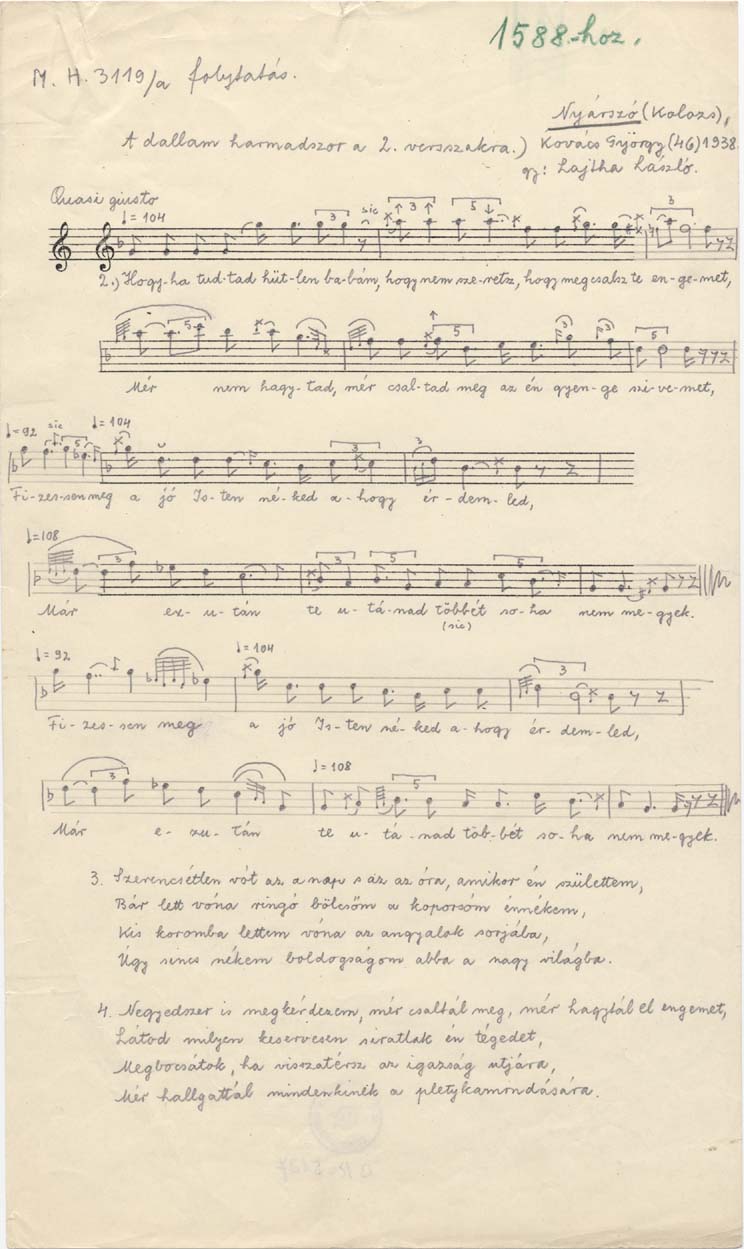 1588.-hoz.
M. H. 3119/a folytatás.
Nyárszó (Kolozs),
A dallam harmadszor a 2. versszakra.) Kovács György (46) 1938.
gy: Lajtha László.
Quasi giusto
♩ = 104
3 sic 3 5 3
2.) Hogy-ha tud-tad hüt-len ba-bám, hogy nem sze-retsz, hogy meg csalsz te en-ge-met,
5 5 3 3 5
Mér nem hagy-tad, mér csal-tad meg az én gyen-ge szi-ve-met,
♩ = 92 sic 5 ♩ = 104 3 3
Fi-zes-sen meg a jó Is-ten né-ked a-hogy ér-dem-led,
♩ = 108
3 3 5 5
Már ex-u-tán te u-tá-nad többét so-ha nem me-gyek.
(sic)
♩ = 92 ♩ = 104 3
Fi-zes-sen meg a jó Is-ten né-ked a-hogy ér-dem-led,
3 ♩ = 108 5
Már e-zu-tán te u-tá-nad töb-bét so-ha nem me-gyek.
3. Szerencsétlen vót az a nap s áz az óra, amikor én születtem,
Bár lett vóna ringó bölcsőm a koporsóm énnékem,
Kis koromba lettem vóna az angyalok sorjába,
Úgy sincs nékem boldogságom abba a nagy világba.
4. Negyedszer is megkérdezem, mér csaltál meg, mér hagytál el engemet,
Látod milyen keservesen siratlak én tégedet,
Megbocsátok, ha visszatérsz az igazság utjára,
Mér hallgattál mindenkinék a pletykamondására.